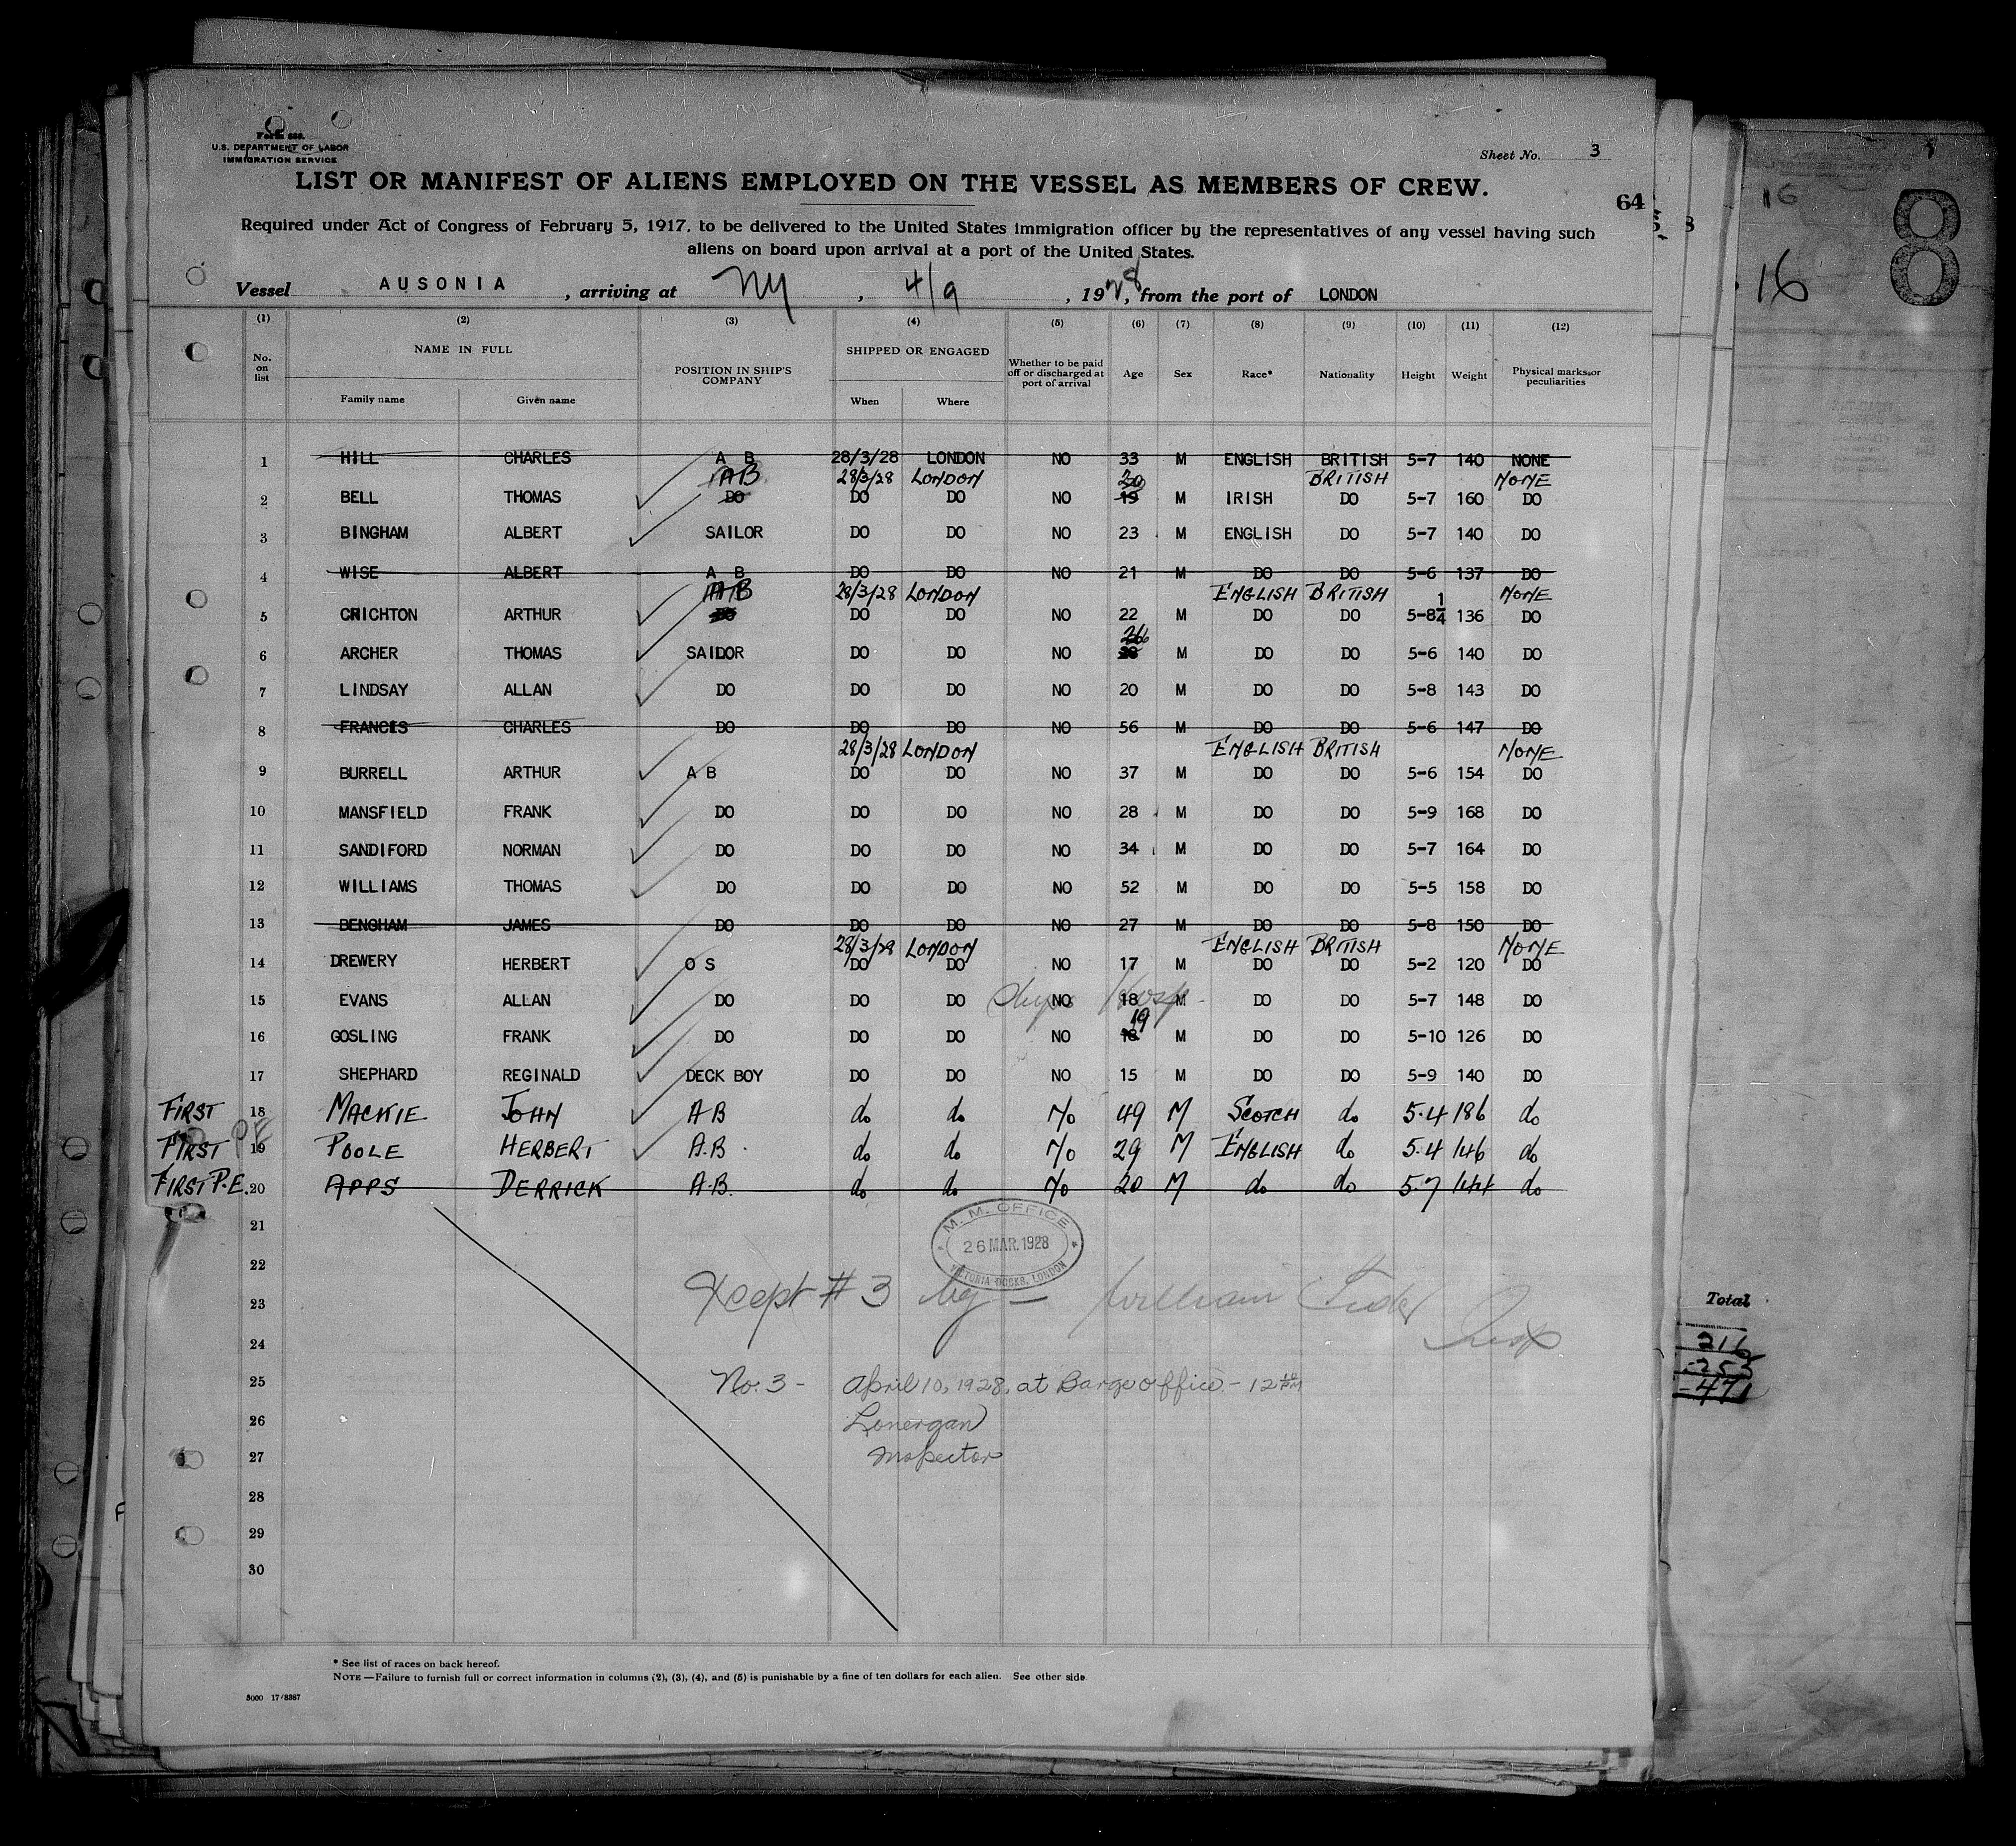 Form 680.
U.S. DEPARTMENT OF LABOR
IMMIGRATION SERVICE
Sheet No. 3
LIST OR MANIFEST OF ALIENS EMPLOYED ON THE VESSEL AS MEMBERS OF CREW.
64
Required under Act of Congress of February 5, 1917, to be delivered to the United States immigration officer by the representatives of any vessel having such
aliens on board upon arrival at a port of the United States.
Vessel AUSONIA, arriving at NY, 4/9, 1928, from the port of LONDON
(1) (2) (3) (4) (5) (6) (7) (8) (9) (10) (11) (12)
No. on list NAME IN FULL POSITION IN SHIP'S COMPANY SHIPPED OR ENGAGED Whether to be paid off or discharged at port of arrival Age Sex Race* Nationality Height Weight Physical marks or peculiarities
Family name Given name When Where
1 HILL CHARLES A B 28/3/28 LONDON NO 33 M ENGLISH BRITISH 5-7 140 NONE
AB 28/3/28 LONDON 20 BRITISH NONE
2 BELL THOMAS DO DO DO NO 19 M IRISH DO 5-7 160 DO
3 BINGHAM ALBERT SAILOR DO DO NO 23 M ENGLISH DO 5-7 140 DO
4 WISE ALBERT A B DO DO NO 21 M DO DO 5-6 137 DO
AB 28/3/28 LONDON ENGLISH BRITISH NONE
5 CRICHTON ARTHUR DO DO DO NO 22 M DO DO 5-8 1/4 136 DO
26
6 ARCHER THOMAS SAIDOR DO DO NO M DO DO 5-6 140 DO
7 LINDSAY ALLAN DO DO DO NO 20 M DO DO 5-8 143 DO
8 FRANCIS CHARLES DO DO DO NO 56 M DO DO 5-6 147 DO
28/3/28 LONDON ENGLISH BRITISH NONE
9 BURRELL ARTHUR A B DO DO NO 37 M DO DO 5-6 154 DO
10 MANSFIELD FRANK DO DO DO NO 28 M DO DO 5-9 168 DO
11 SANDIFORD NORMAN DO DO DO NO 34 M DO DO 5-7 164 DO
12 WILLIAMS THOMAS DO DO DO NO 52 M DO DO 5-5 158 DO
13 BENGHAM JAMES DO DO DO NO 27 M DO DO 5-8 150 DO
28/3/28 LONDON ENGLISH BRITISH NONE
14 DREWERY HERBERT O S DO DO NO 17 M DO DO 5-2 120 DO
15 EVANS ALLAN DO DO DO NO 18 M DO DO 5-7 148 DO
19
16 GOSLING FRANK DO DO DO NO 18 M DO DO 5-10 126 DO
17 SHEPHARD REGINALD DECK BOY DO DO NO 15 M DO DO 5-9 140 DO
FIRST 18 MACKIE JOHN AB do do No 49 M SCOTCH do 5.4 186 do
FIRST P E 19 POOLE HERBERT A.B. do do No 29 M ENGLISH do 5.4 146 do
FIRST P.E. 20 APPS DERRICK A.B. do do No 20 M do do 5.7 144 do
21
M. M. OFFICE
26 MAR. 1928
VICTORIA DOCKS, LONDON
22
Xcept # 3 by — William
23
Insp
24
25 No. 3 - April 10, 1928, at Barge office - 12
26 Lonergan
27 Inspector
28
29
30
* See list of races on back hereof.
NOTE.—Failure to furnish full or correct information in columns (2), (3), (4), and (5) is punishable by a fine of ten dollars for each alien. See other side
5000 17/8387
16
8
16
Total
216
255
471